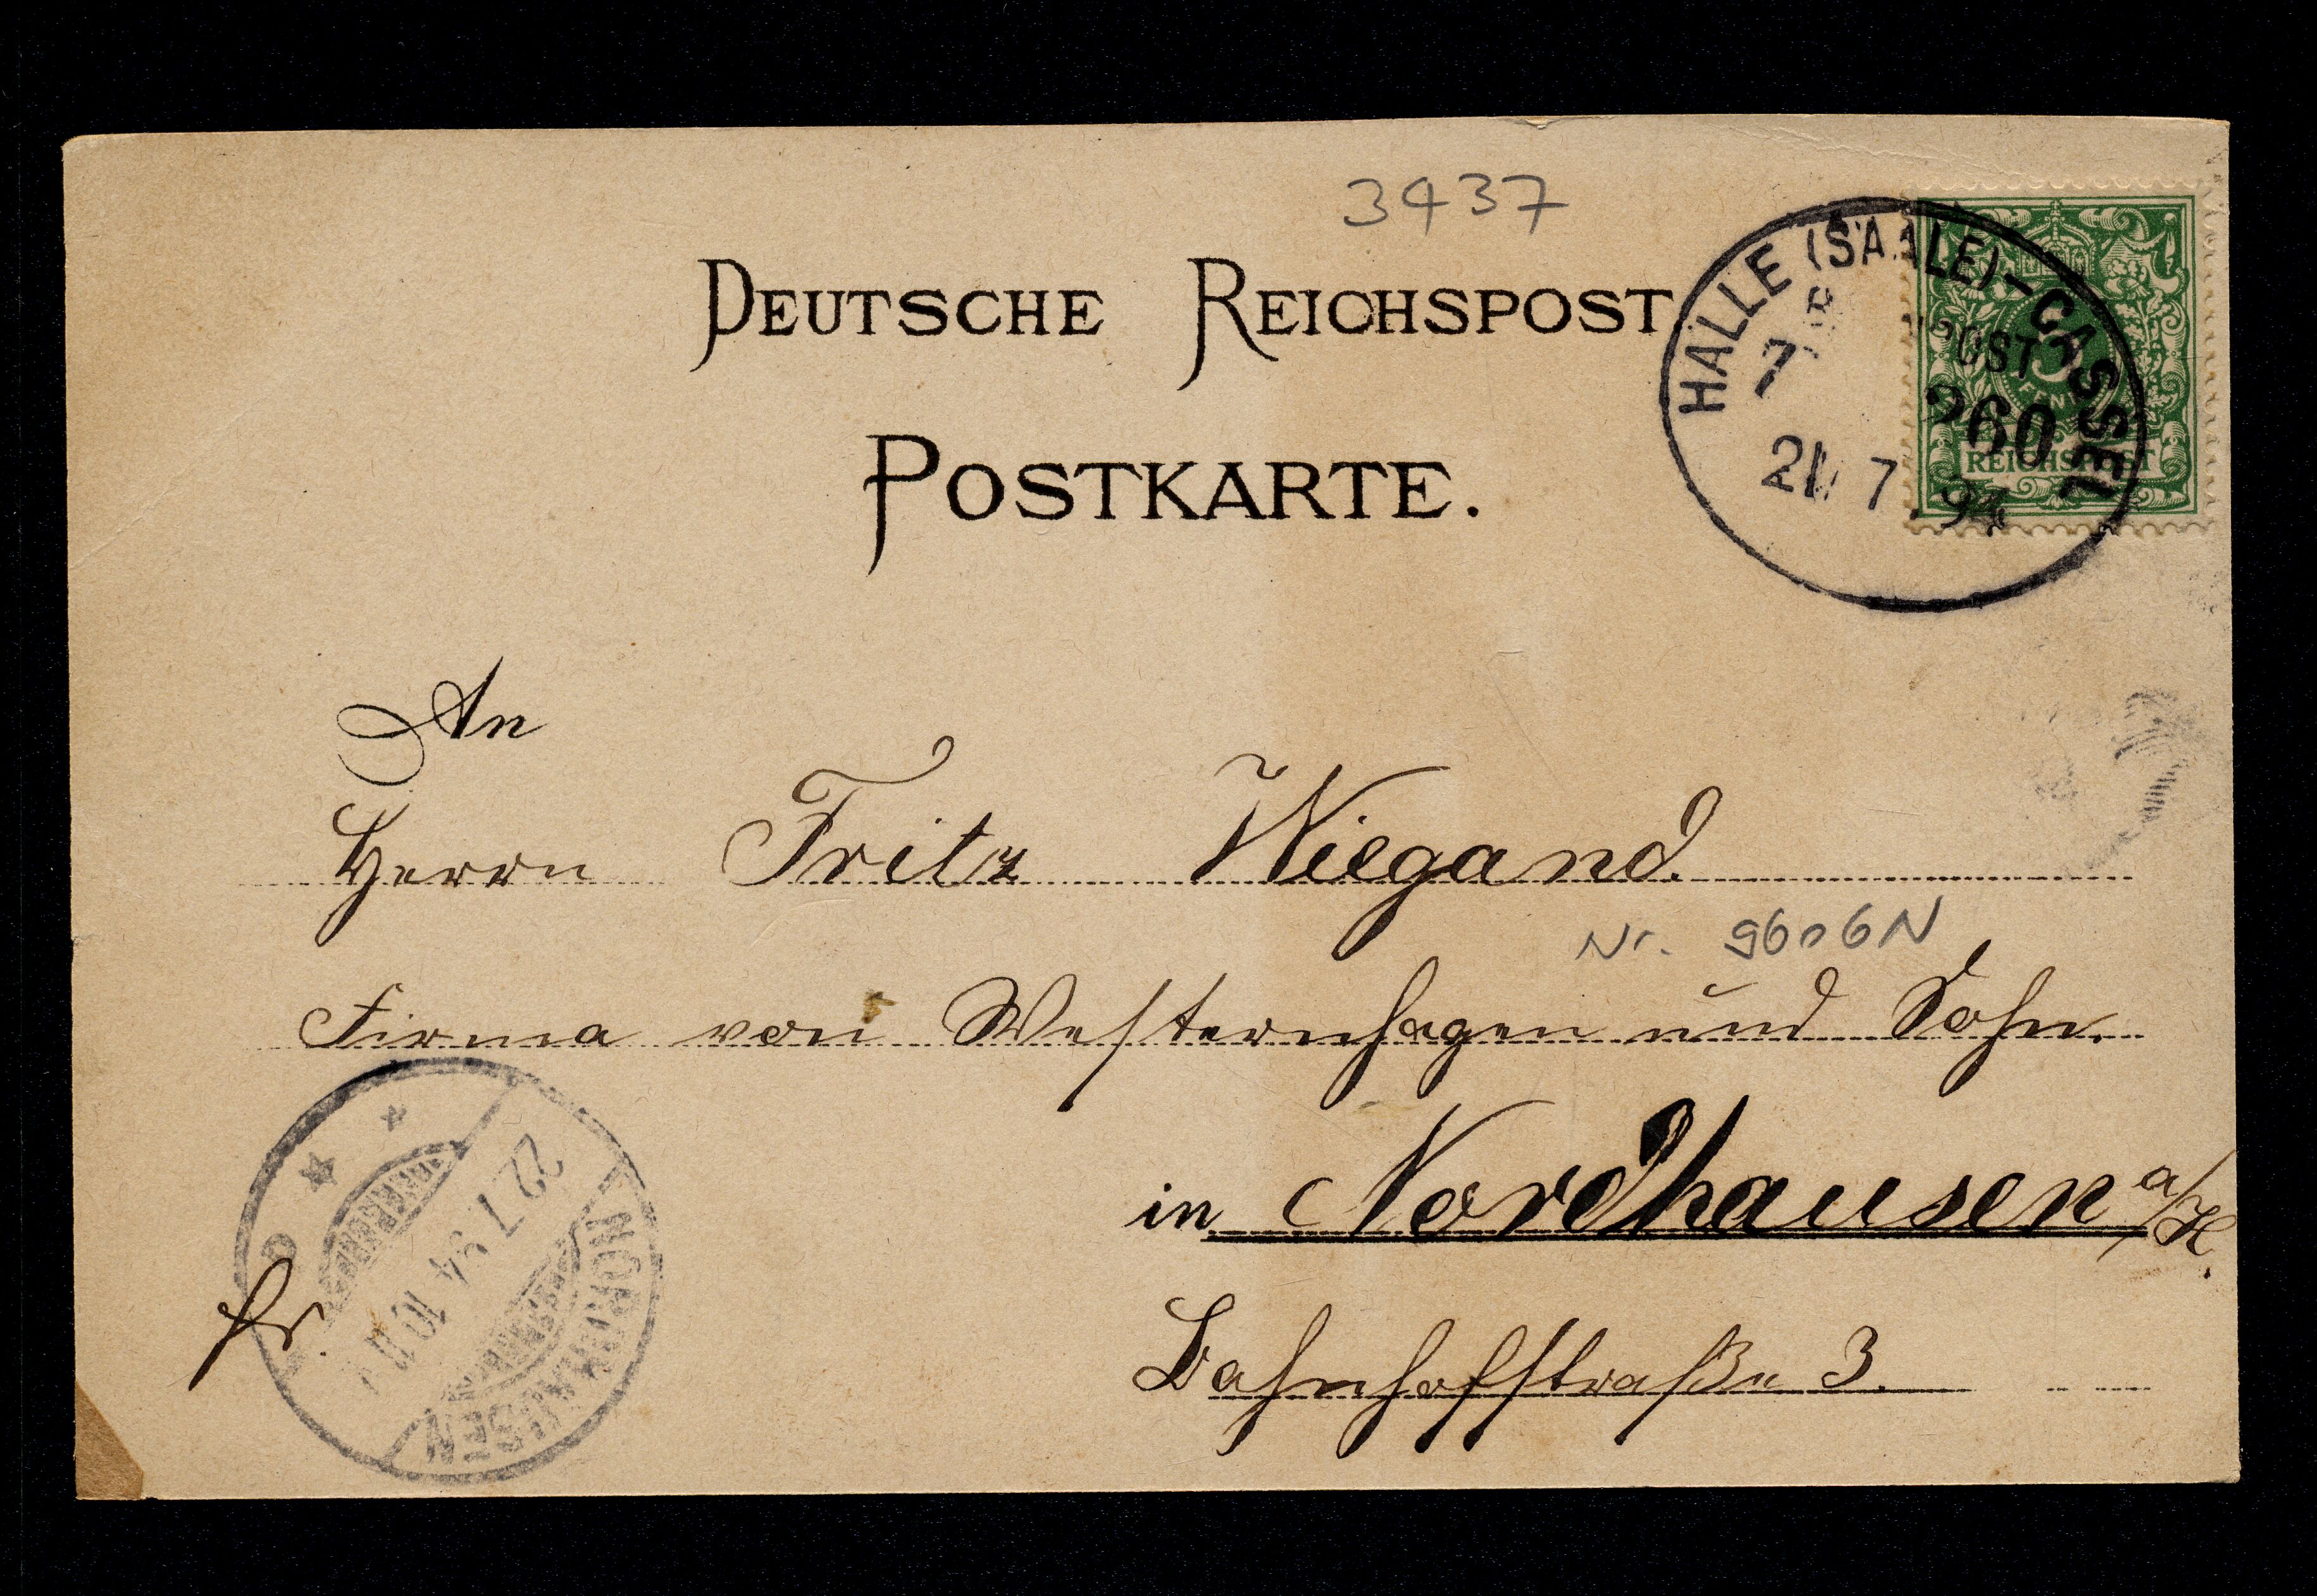 3437
DEUTSCHE REICHSPOST
POSTKARTE.
HALLE (SAALE)-CASSEL
POST
7 260
21 7 94
REICHSPOST
An
Herrn Fritz Wiegand.
Nr. 9606N
Firma von Westernhagen und Sohn.
in Nordhausen a/H.
Bahnhofstraße 3.
fr.
NORDHAUSEN
22 7 94 10